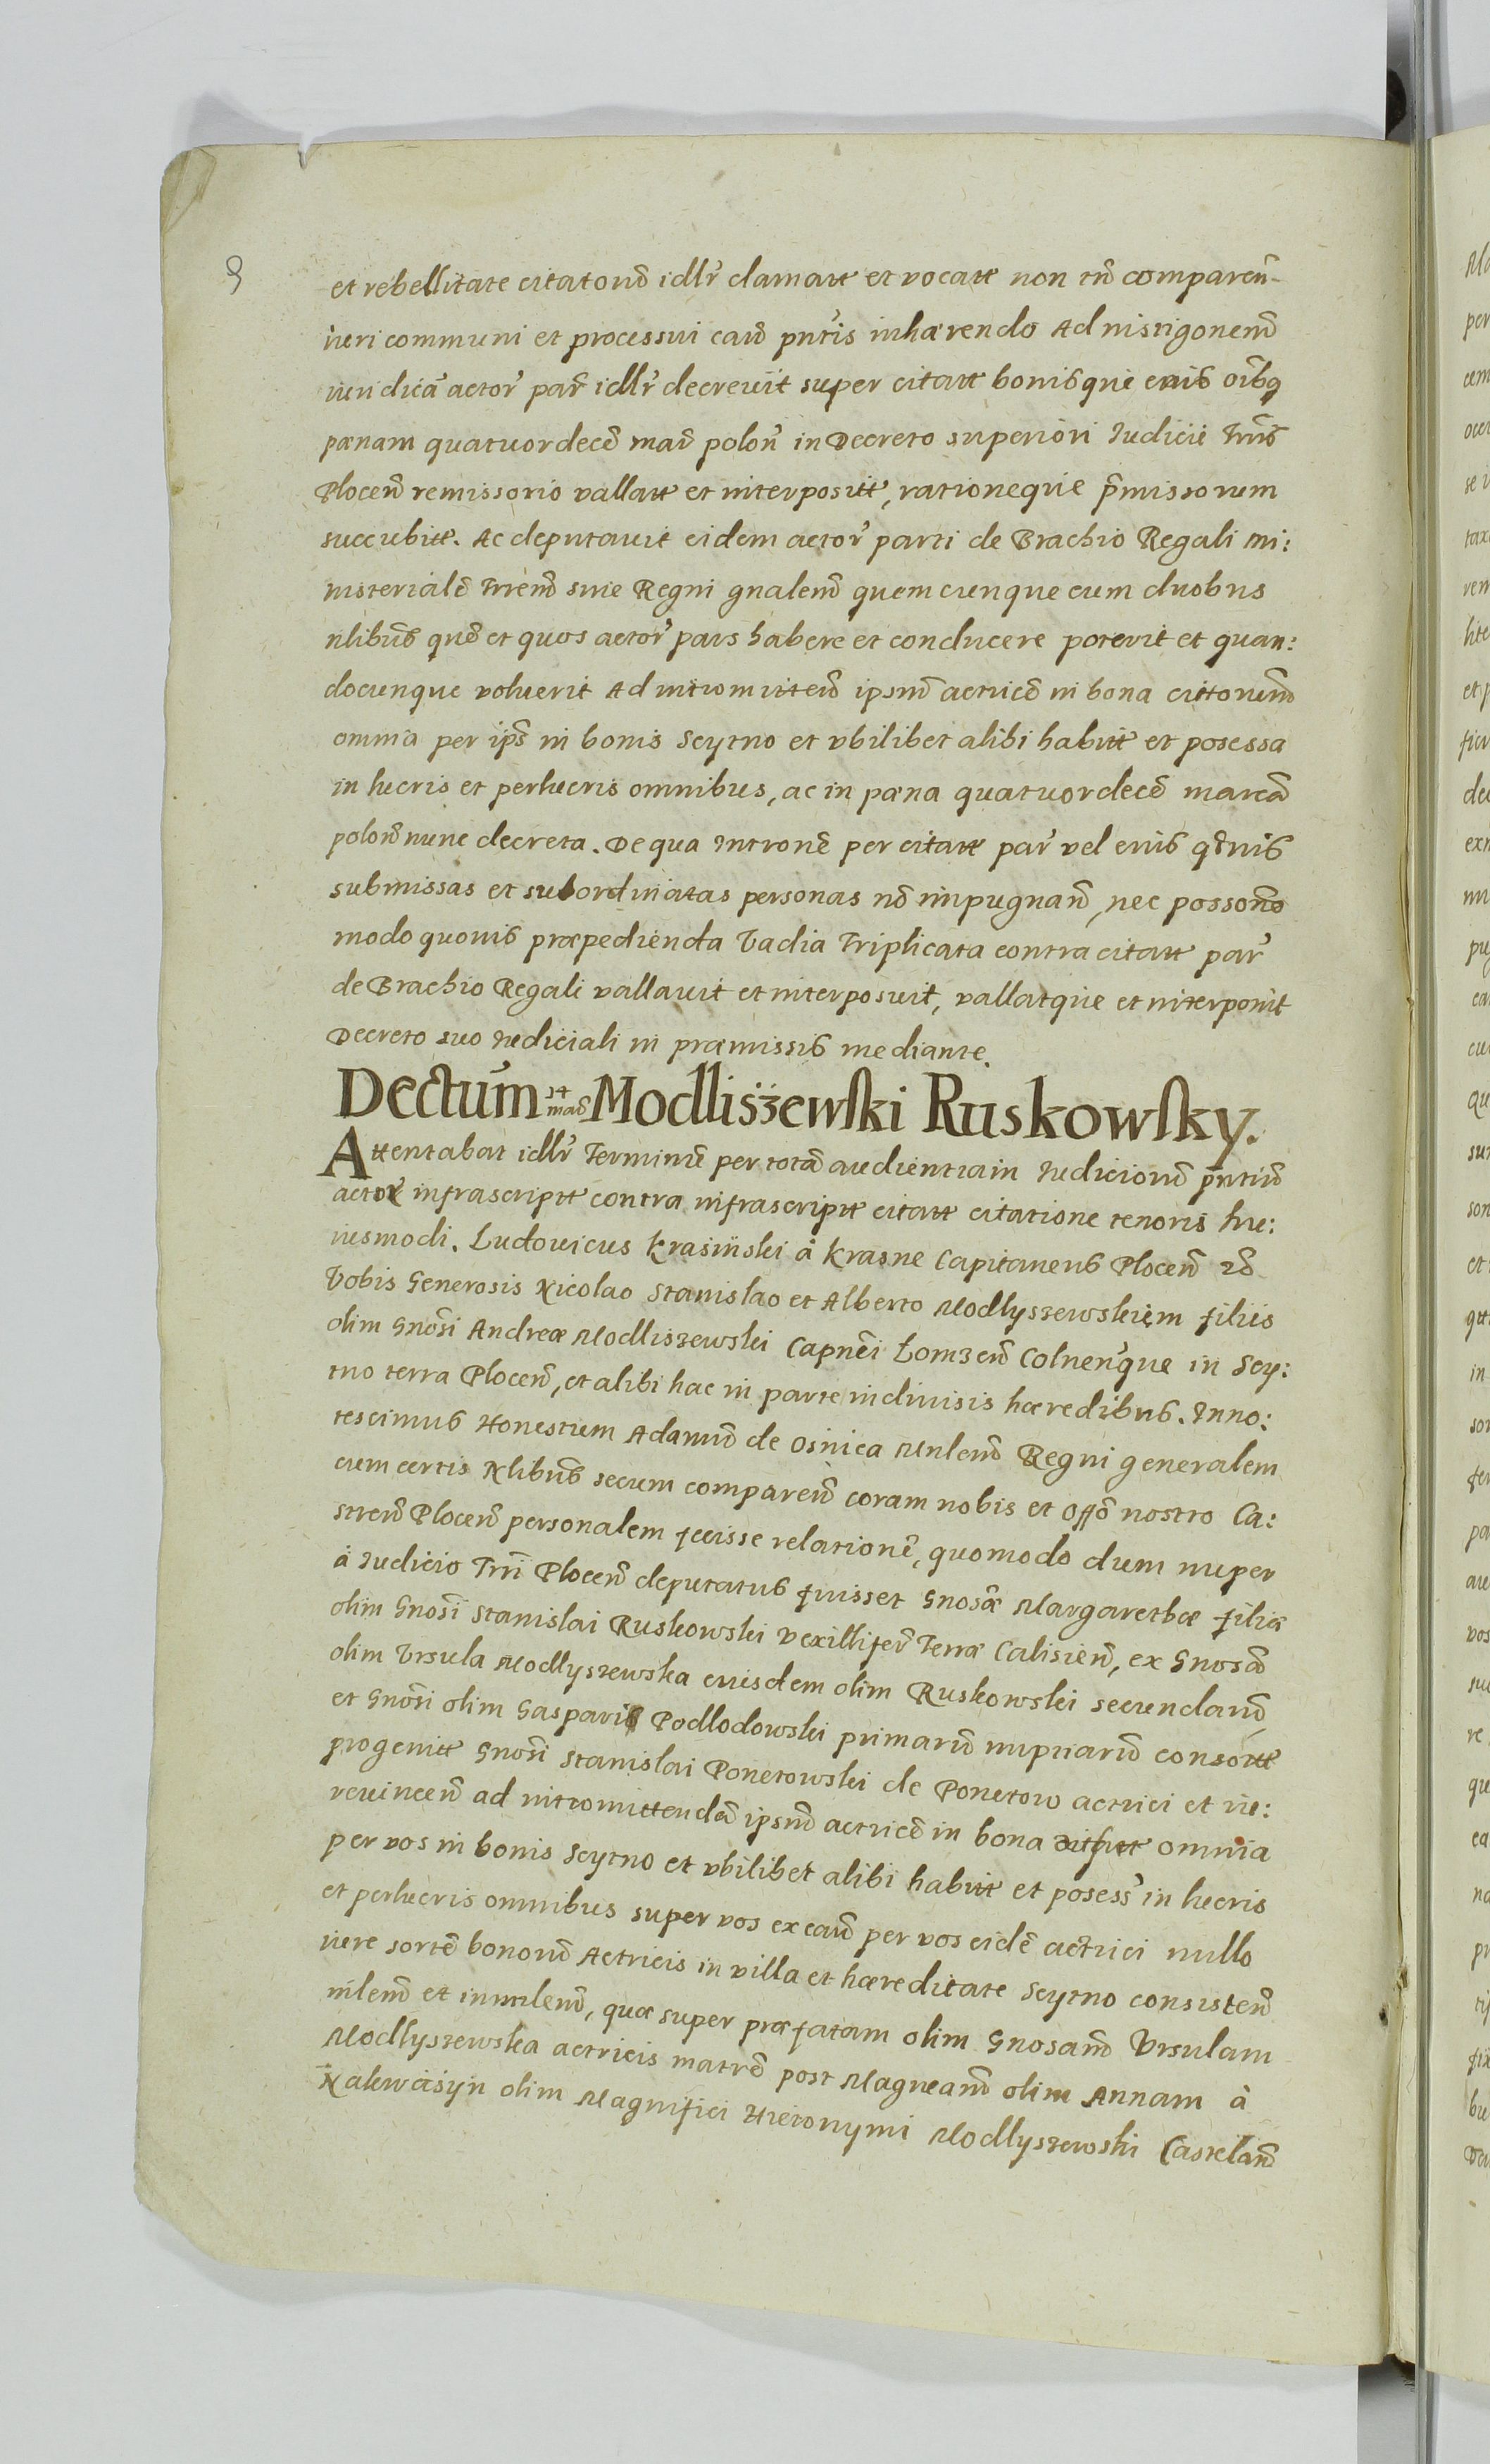 9
et rebellitate citatorū idlr̄ clamatt et vocatt non tn̄ comparen̄
iuri communi et processui cau͂ pntis inhærendo Ad nistigonem
iuridicā actor̄ par̄ idlr̄ decrevit super citatt bonisque eius oībq
pænam quatuordecē mar̄ polon̄ in Decreto superiori Iudicii Trn̄lis
Plocen̄ remissorio vallatt et interposuitt, rationeque p̄missorum
succubitt. Ac deputavit eidem actor̄ parti de Brachio Regali mi:
nisterialē Trrenū sive Regni gnalem̄ quemcunque cum duobus
nlibus quē et quos actor̄ pars habere et conducere poterit et quan:
docunque voluerit Ad intromitten̄ ipsm̄ actricē in bona cittorum̄
omnia per ips̄ in bonis Scytno et vbilibet alibi habitt et posessa
in lucris et perlucris omnibus, ac in pæna quatuordecē marcā
polon̄ nunc decreta. De qua Intronē per citatt par̄ vel eius qu̅vis
submissas et subordinatas personas nō impugnan̄, nec possonē
modo quovis præpedienda Vadia Triplicata contra citatt par̄
de Brachio Regali vallavit et interposuit, vallatque et interponit
Decreto suo Iudiciali in præmissis mediante.
Dectum 14 mar̄ Modliszewski Ruskowsky.
Attentabat idlr̄ Terminū per totā audientiam Iudiciorū pn̄tiū
actor̄ infrascriptt contra infrascriptt citatt citatione tenoris hu:
iusmodi. Ludovicus Krasiński á Krasne Capitaneus Plocen̄ rō
Vobis Generosis Nicolao Stanislao et Alberto Modlyszewskiem filiis
olim Gnōsi Andreæ Modliszewski Capnēi Łomzen̄ Colnen̄que in Scy:
tno terra Plocen̄, et alibi hac in parte indivisis hæredibus. Inno:
tescimus Honestum Adamū de Osnica Mnlem̄ Regni generalem
cum certis Nlibus secum comparen̄ coram nobis et Offō nostro Ca:
stren̄ Plocen̄ personalem fecisse relationē, quomodo dum nuper
á Iudicio Trn̄i Plocen̄ deputatus fuisset Gnosæ Margarethæ filiæ
olim Gnosī Stanislai Ruskowski vexillifer̄ Terræ Calisien̄, ex Gnosā
olim Vrsula Modlyszewska eiusdem olim Ruskowski secundarū,
et Gnōsi olim Gasparis Podlodowski primarū nuptiarū consortt
progenitt Gnosī Stanislai Ponetowski de Ponetow actrici et iu:
revincen̄ ad intromittendā ipsm̄ actricē in bona omnia
per vos in bonis Scytno et vbilibet alibi habitt et posess̄ in lucris
et perlucris omnibus super vos ex cau͂ per vos eidē actrici nullo
iure sortē bonorū Actricis in villa et hæreditate Scytno consisten̄
nilem̄ et inutilem̄, quæ super præfatam olim Gnosam̄ Vrsulam
Modlyszewska actricis matrē post Magneam̄ olim Annam á
Nakwasyn olim Magnifici Hieronymi Modlyszewski Castelan̄